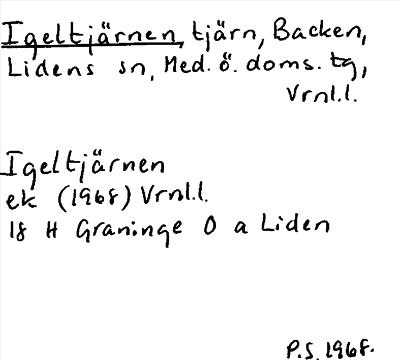 Igeltjärnen, tjärn, Backen,
Lidens sn, Med. ö. doms. tg,
Vrnl.l.
Igeltjärnen
ek (1968) Vrnl.l.
18 H Graninge O a Liden
P.S. 1968.